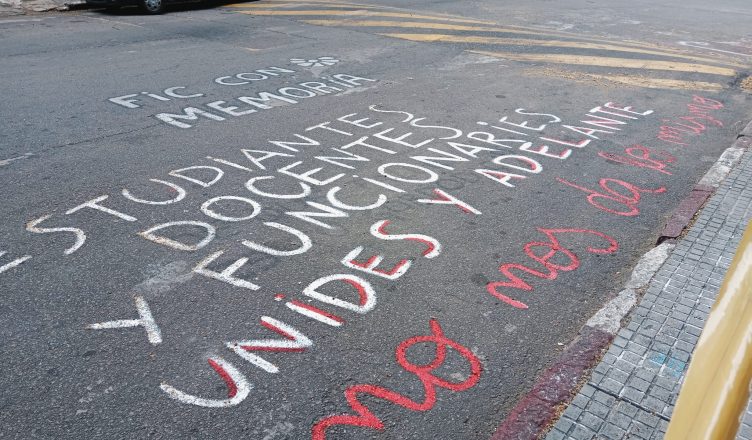 FIC CON
MEMORIA
ESTUDIANTES
DOCENTES
Y FUNCIONARIES
UNIDES Y ADELANTE
no nos da lo mismo